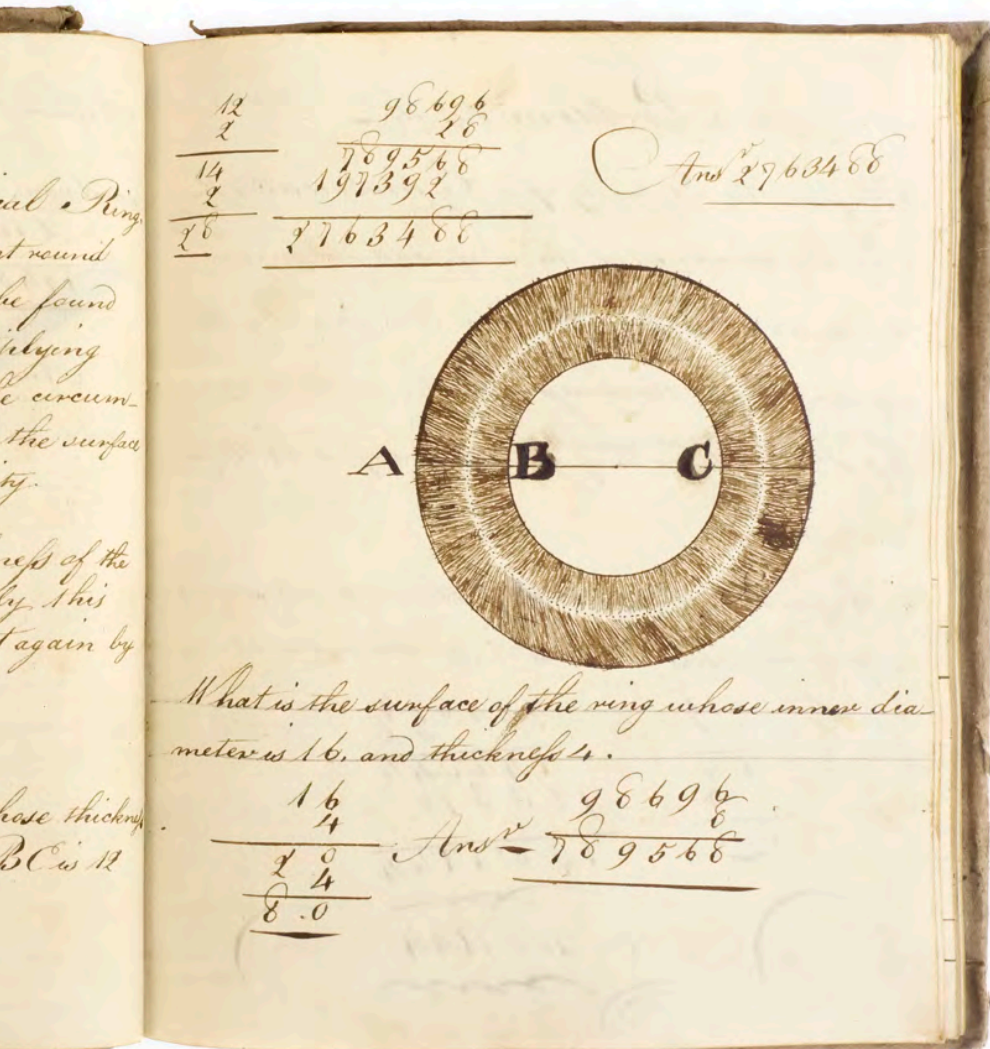 cal Ring,
et round
be found
tiplying
e circum-
the surface
ity.
neſs of the
ly this
t again by
hose thickneſs
BC is 12
12
2
14
2
28
98696
28
789568
197392
2763488
Ansr 2763488
A B C
What is the surface of the ring whose inner dia-
meter is 16, and thickneſs 4.
16
4
20
4
8.0
Ansr
98696
8
789568